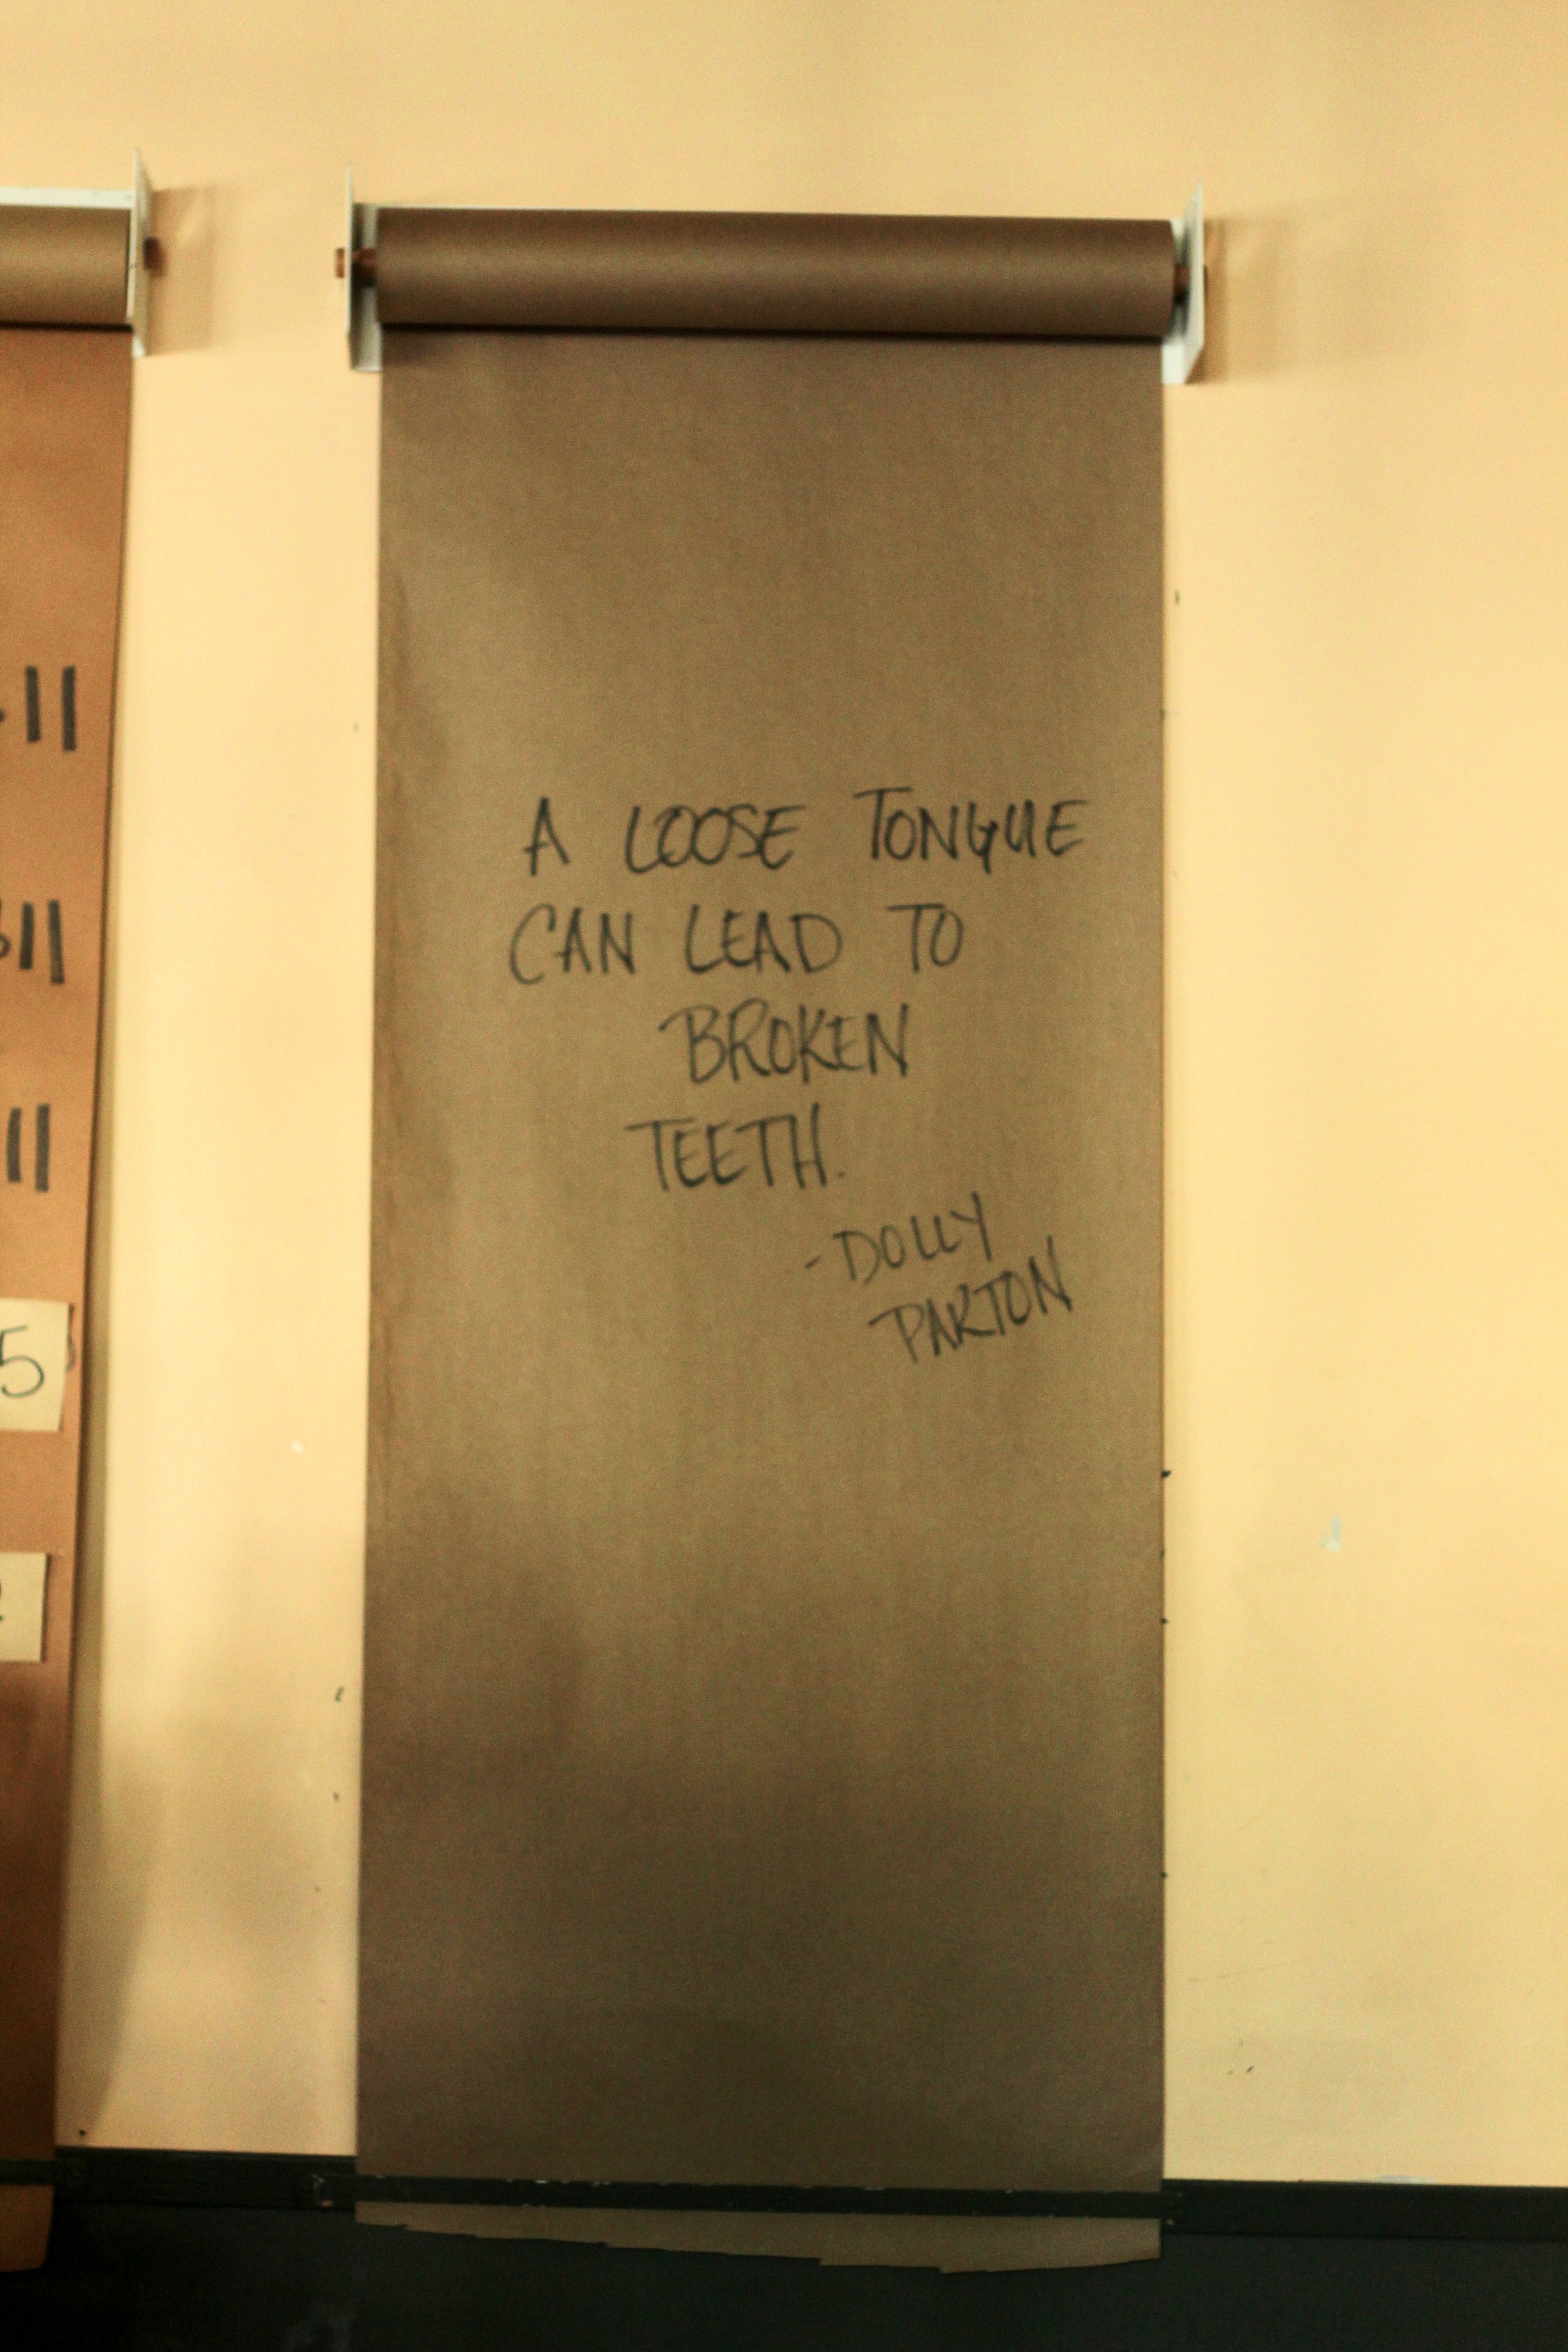 A LOOSE TONGUE
CAN LEAD TO
BROKEN
TEETH.
- DOLLY
PARTON
5